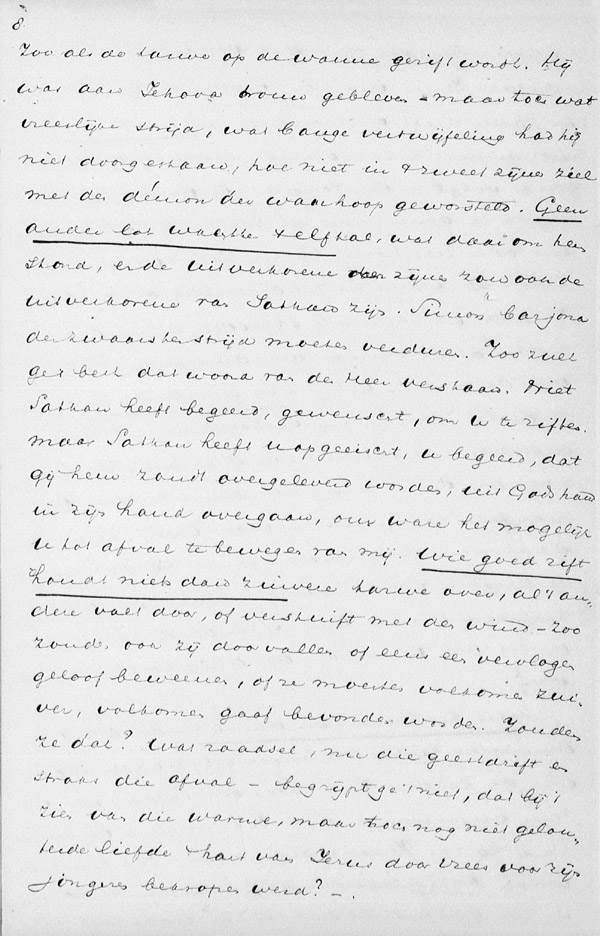 8
Zoo als de tarwe op de wanne gezift wordt. Hij
was aan Jehova trouw gebleven – maar toch wat
vreeslijke strijd, wat bange vertwijfeling had hij
niet doorgestaan, hoe niet in 't zweet zijner ziel
met den démon der wanhoop geworsteld. Geen
ander lot wachtte 't elftal, wat daar om hem
stond, en de uitverkorene zijner zou ook de
uitverkorene van Sathan zijn. Simon Barjona
den zwaarsten strijd moeten verduren. Zoo zult
gij best dat woord van den Heer verstaan. Niet
Sathan heeft begeerd, gewenscht, om u te ziften.
maar Sathan heeft u opgeëischt, u begeerd, dat
gij hem zoudt overgeleverd worden, uit Gods hand
in zijn hand overgaan, om ware het mogelijk
u tot afval te bewegen van mij. Wie goed zift
houdt niets dan zuivere tarwe over, al 't an-
dere valt door, of verstuift met den wind – zoo
zouden ook zij doorvallen of eens een vervlogen
geloof beweenen, of ze moesten volkomen zui-
ver, volkomen gaaf bevonden worden. Zouden
ze dat? Wat raadsel, nu die geestdrift en
straks die afval – begrijpt ge 't niet, dat bij 't
zien van die warme, maar toch nog niet gelou-
terde liefde 't hart van Jezus door vrees voor zijn
jongeren bekropen werd? –.